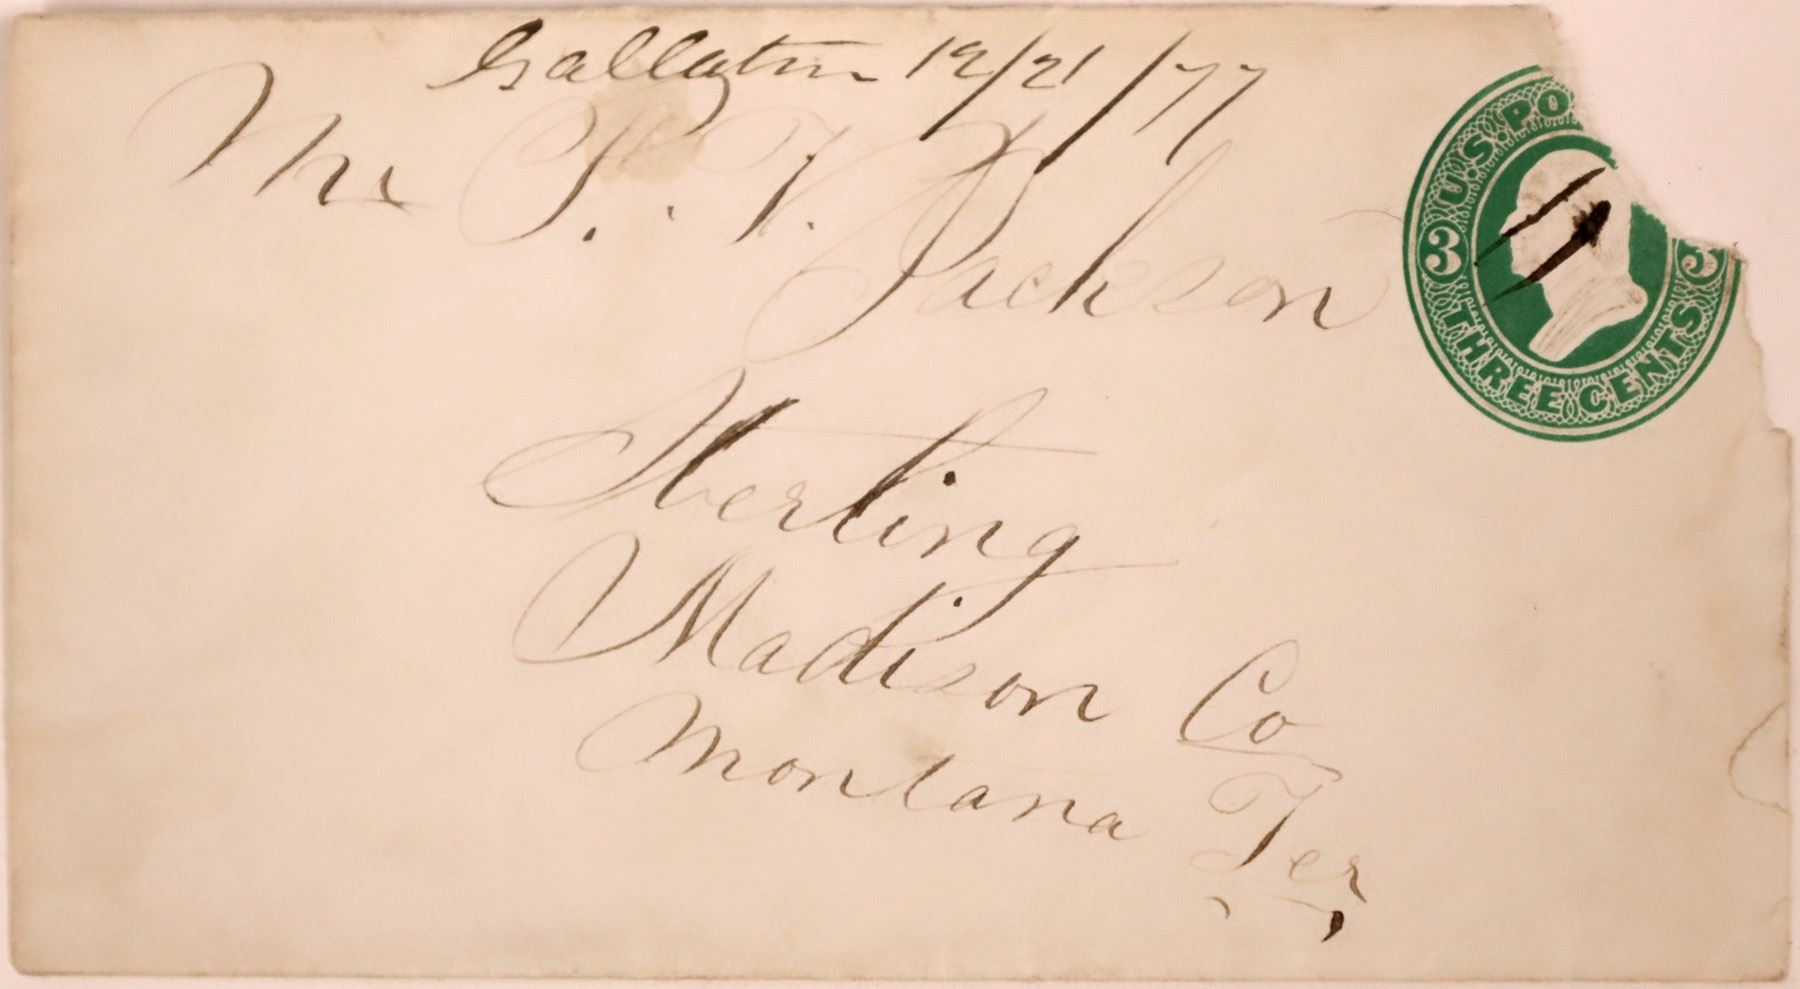 Gallatin 12/21/77
Mr S. T. Jackson
Sterling
Madison Co
Montana Ter
U.S. PO
3
3
THREE CENTS